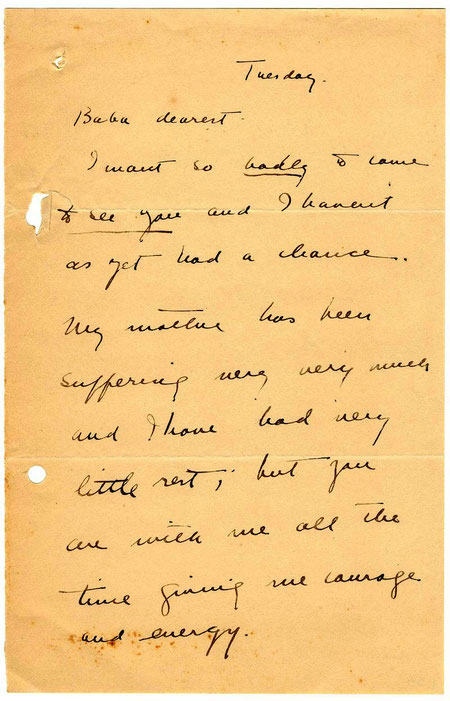 Tuesday.
Baba dearest.
I want so badly to come
to see you and I haven't
as yet had a chance.
My mother has been
suffering very very much
and I have had very
little rest; but you
are with me all the
time giving me courage
and energy.